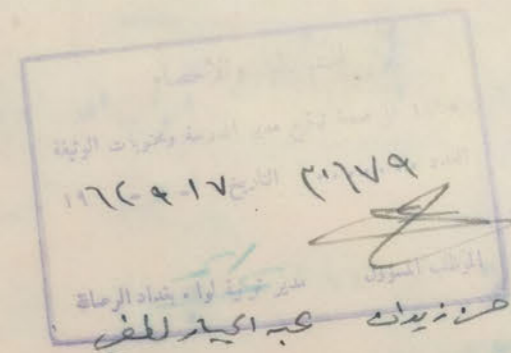 والاحصاء
صحة توقيع مدير المدرسة ومحتويات الوثيقة
العدد ٣٠٦٧٩ التاريخ ١٧-٩-١٩٦٢
الموظف المسؤول مدير تربية لواء بغداد الرصافة
حسن زيدان عبد الجبار لطفي